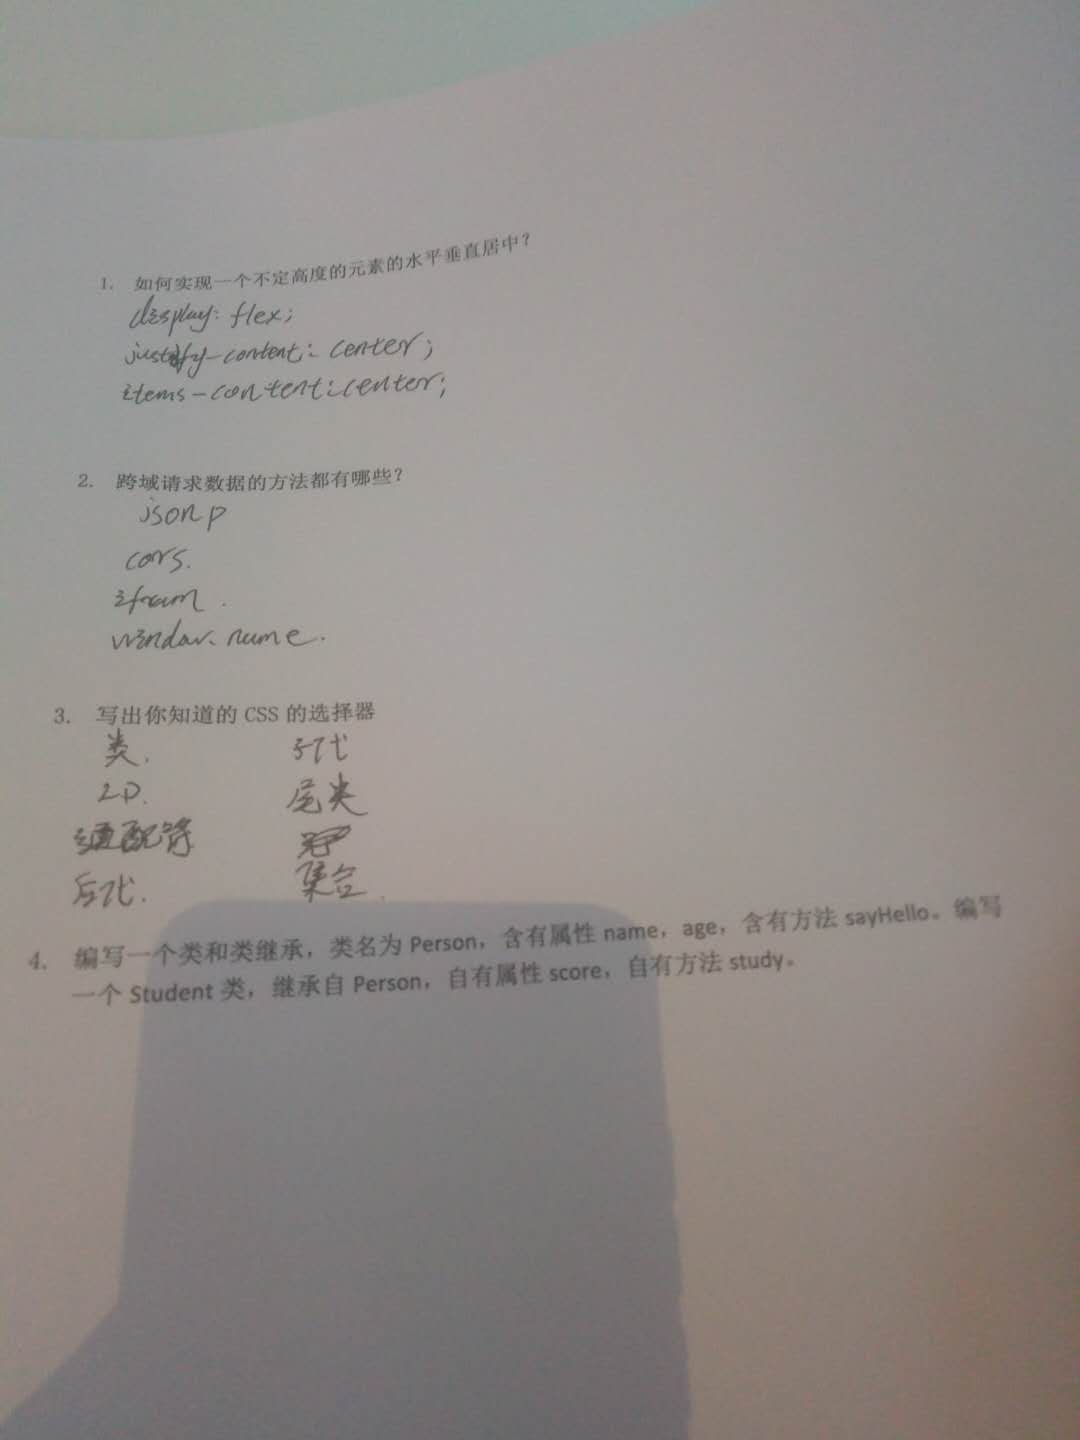 1. 如何实现一个不定高度的元素的水平垂直居中？
display: flex;
justify-content: center;
items-content:center;
2. 跨域请求数据的方法都有哪些？
jsonp
cors.
ifram.
window.name.
3. 写出你知道的 CSS 的选择器
类. 子代
ID. 尾类
通配符
后代. 集合.
4. 编写一个类和类继承，类名为 Person，含有属性 name，age，含有方法 sayHello。编写
一个 Student 类，继承自 Person，自有属性 score，自有方法 study。